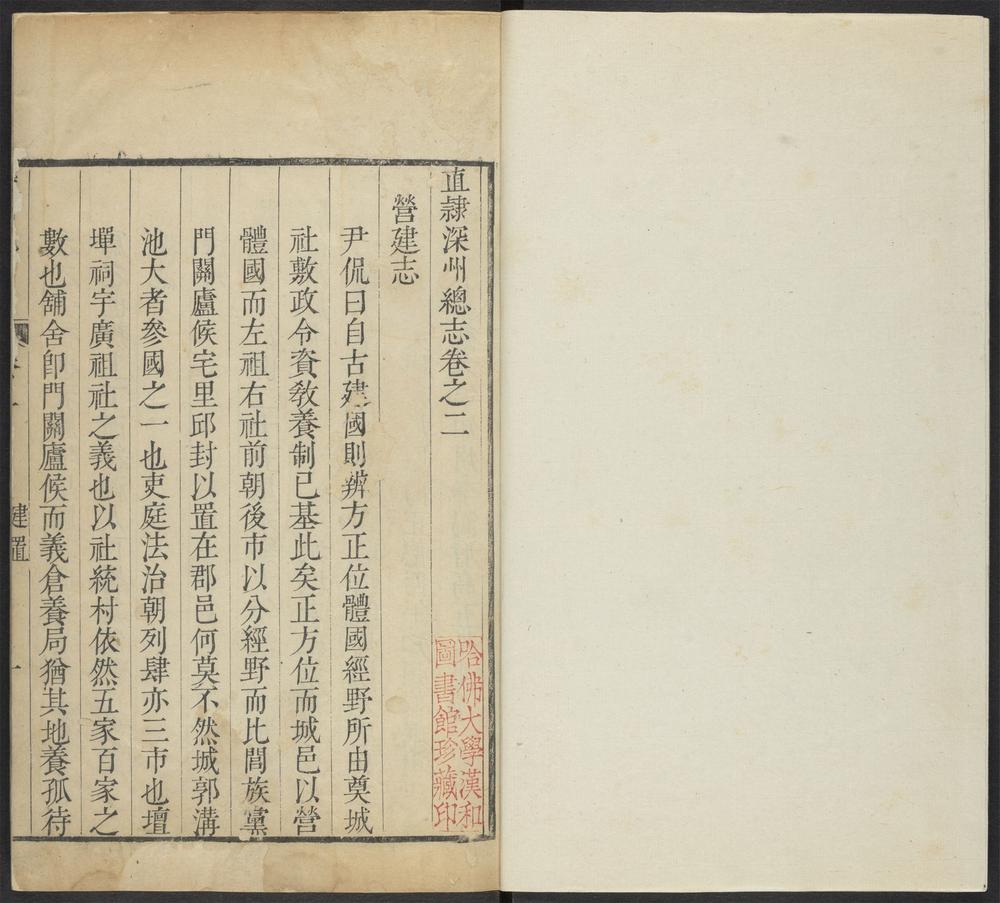 直隸深州總志卷之二
營建志
尹侃曰自古建國則辨方正位體國經野所由奠城
社敷政令資敎養制已基此矣正方位而城邑以營
體國而左祖右社前朝後市以分經野而比閭族黨
門關廬候宅里邱封以置在郡邑何莫不然城郭溝
池大者參國之一也吏庭法治朝列肆亦三市也壇
墠祠宇廣祖社之義也以社統村依然五家百家之
數也舖舍卽門關廬候而義倉養局猶其地養孤待
建置
一
哈佛大學漢和
圖書館珍藏印